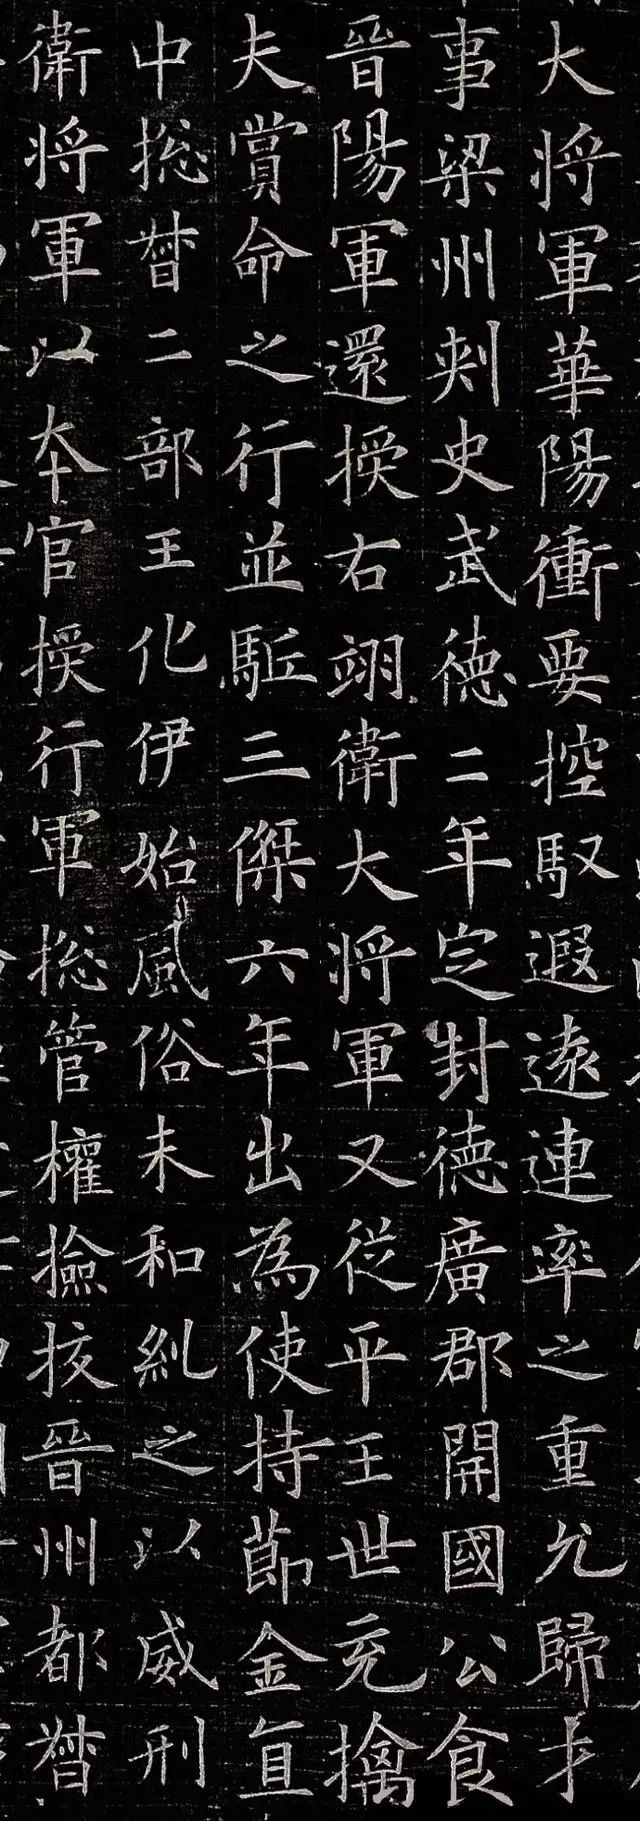 大将軍華陽衝要控馭遐遠連率之重允歸才
事梁州刾史武德二年定封德廣郡開國公食
晉陽軍還授右翊衛大将軍又從平王世充擒
夫賞命之行並駈三傑六年出為使持節金直
中揔督二部王化伊始風俗未和糺之以威刑
衛将軍以本官授行軍揔管權撿挍晉州都督